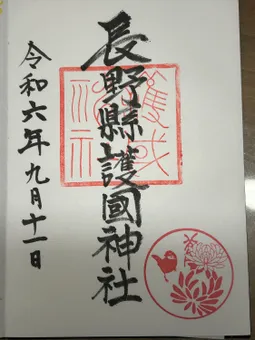 長野縣護國神社
令和六年九月十一日